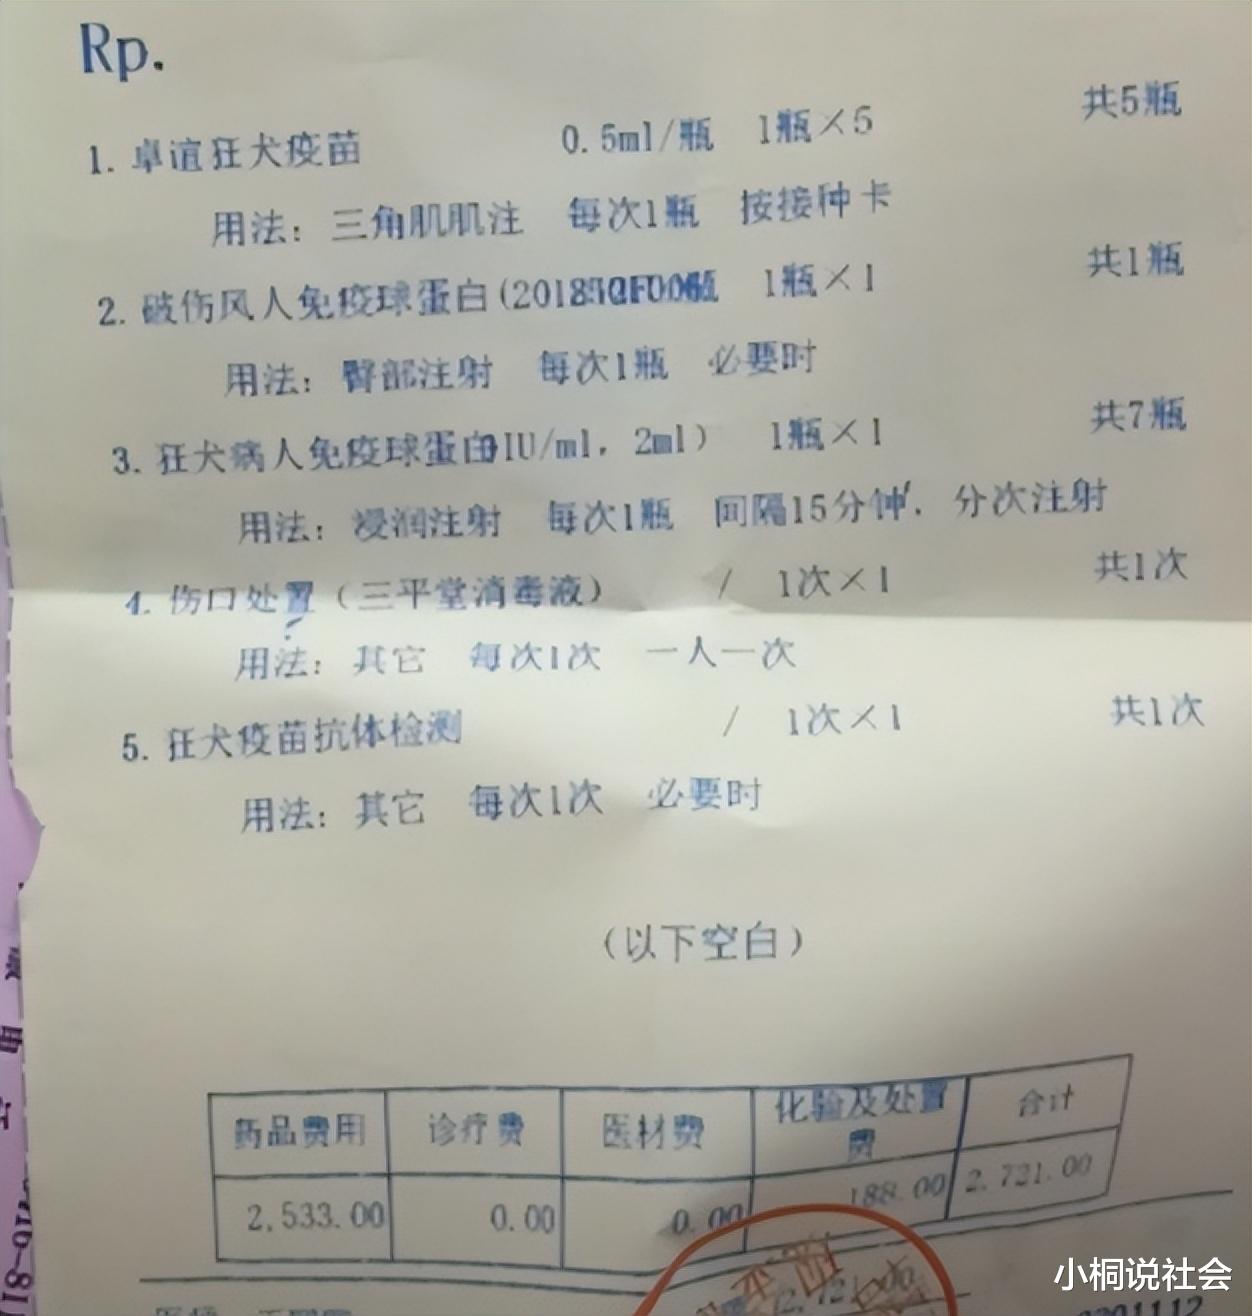 Rp.
1. 卓谊狂犬疫苗 0.5ml/瓶 1瓶×5 共5瓶
用法：三角肌肌注 每次1瓶 按接种卡
2. 破伤风人免疫球蛋白(2018 1瓶×1 共1瓶
用法：臀部注射 每次1瓶 必要时
3. 狂犬病人免疫球蛋白IU/ml，2ml） 1瓶×1 共7瓶
用法：浸润注射 每次1瓶 间隔15分钟，分次注射
4. 伤口处置（三平堂消毒液） / 1次×1 共1次
用法：其它 每次1次 一人一次
5. 狂犬疫苗抗体检测 / 1次×1 共1次
用法：其它 每次1次 必要时
（以下空白）
药品费用 诊疗费 医材费 化验及处置费 合计
2,533.00 0.00 0.00 188.00 2,721.00
小桐说社会